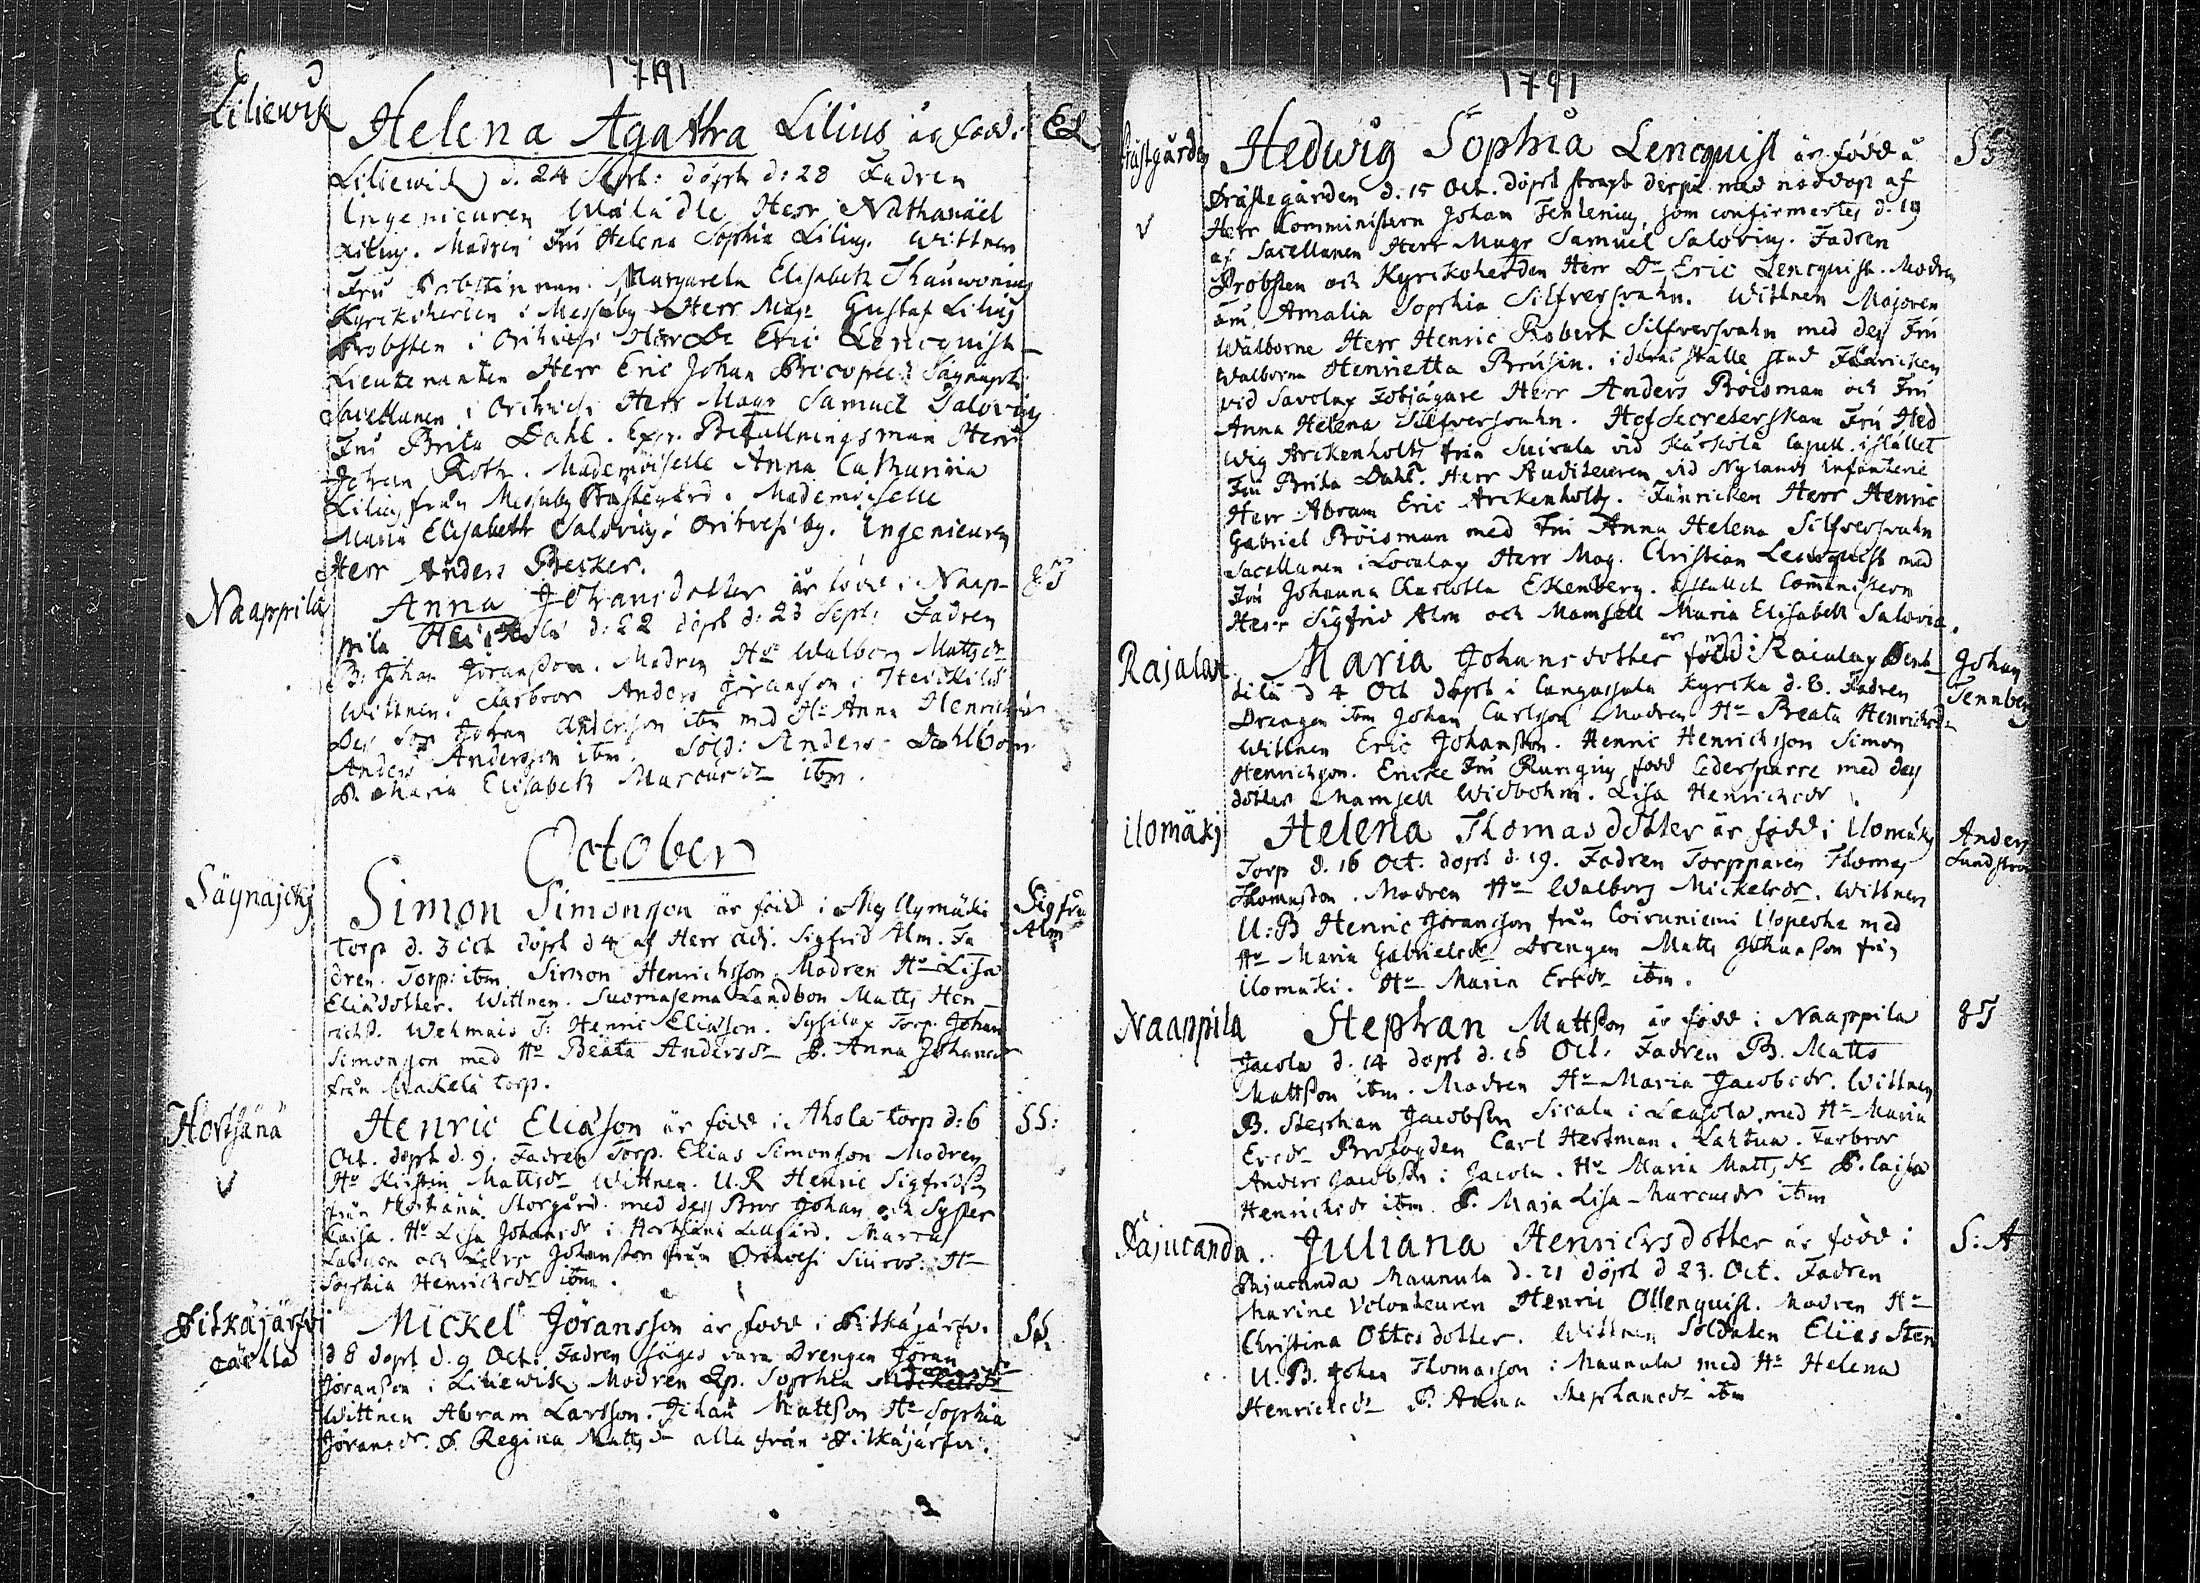 1791
Liliewik
Helena Agatha Lilius är född i
EL
Liliewik d. 24 Sept: döpt d: 28 Fadren
Ingenieuren Wälädle Herr Nathanäel
Lilius. Madren Fru Helena Sophia Lilius. Wittnen
Fru Probstinnan Margareta Elisabeth Thauwonius
Kyrkoherden i Messuby Herr Mag: Gustaf Lilius
Probsten i Orihvesi Herr Dr Eric Lencquist
Lieutenanten Herr Eric Johan Procopee i Säynäjoki
Sacellanen i Orihvesi Herr Magr Samuel Salovius
Fru Brita Dahl. Exp. Befallningsman Herr
Johan Roth. Mademoiselle Anna Catharina
Lilius från Messuby Prästegård. Mademoiselle
Maria Elisabeth Salovius i Orihvesi by. Ingenieuren
Herr Anders Becker.
Naappila
Anna Johansdotter är född i Naap-
pila Heickilä d: 22 döpt d: 23 Sept: Fadren
B: Johan Jöransson. Madren Hu Walborg Mattsdr
Wittnen. Farbror Anders Jöransson i Heickilä
Des Son Johan Andersson ibm med Hu Anna Henrichsdr
Anders Andersson ibm. Sold: Anders Dahlbom
P. Maria Elisabeth Marcusdr ibm.
October
Säynäjoki
Simon Simonsson är född i Myllymäki
Sigfrid
Alm
torp d. 3 Oct döpt d 4 af Herr Adj. Sigfrid Alm. Fa
dren Torp: ibm Simon Henrichsson Madren Hu Lisa
Eliædotter. Wittnen. Suomasema Landbon Matts Hen
richs. Wehmais T: Henric Eliasson. Sysilax Torp. Johan
Simonsson med Hu Beata Andersdr P. Anna Johansdr
från Mäkelä torp.
Hortsänä
Henric Eliasson är född i Ahola torp d: 6
SS:
Oct. döpt d. 9. Fadren Torp. Elias Simonsson Modren
Hu Kirstin Mattsdr Wittnen. U.R Henric Sigfridss
från Hortsänä Storgård med dess Bror Johan och Syster
Caisa. Hu Lisa Johansdr i Hortsänä Lillgård. Marcus
och Johansson från Orihvesi Hu
Sophia Henrichsdr ibm.
Pitkäjärfvi
Mickel Jöransson är född i Pitkäjärfvi
SS.
d 8 döpt d. 9 Oct. Fadren säges vara Drengen Jöran
Jöransson i Liliewik Modren Qp. Sophia Mickelsdr
Wittnen Abram Larsson. Johan Mattsson Hu Sophia
Jöransdr. P. Regina Mattsdr alla från Pitkäjärfvi.
1791
Prästgården
Hedwig Sophia Lencquist är född å
SS
Prästegården d. 15 Oct. döpt straxt derpå med nöddop af
Herr Comministern Johan Fehlenius som confirmertes d. 19
af Sacellanen Herr Magr Samuel Salovius. Fadren
Probsten och Kyrkoherden Herr Dr Eric Lencquist. Modren
Fru Amalia Sophia Silfversvahn. Wittnen Majoren
Wälborne Herr Henric Robert Silfversvahn med des Fru
Walborna Henrietta Brusin. i deras ställe stod Fänricken
vid Savolax Fotjägare Herr Anders Böisman och Fru
Anna Helena Silfversvahn. Hof Secreterskan Fru Hed
wig Arckenholtz från Suivala vid Kärkiola Capell. istället
Fru Brita Dahl. Herr Auditeuren vid Nylands infanterie
Herr Abram Eric Arckenholtz. Fänricken Herr Henric
Gabriel Böisman med Fru Anna Helena Silfversvahn
Sacellanen i Loculax Herr Mag. Christian Lencquist med
Fru Johanna Charlotta Ekenberg. istället Comministern
Herr Sigfrid Alm och Mamsell Maria Elisabeth Salovia.
Rajalax
Maria Johansdotter är född i Raialax Pent
Johan
Tennberg
tilä d 4 Oct döpt i Cangassala Kyrka d. 8. Fadren
Drengen ibm Johan Carlsson Modren Hu Beata Henrichsdr
Wittnen Eric Johansson. Henric Henrichsson Simon
Henrichsson. Encke Fru Rungius född Cedersparre med des
dotter Mamsell Widbohm. Lisa Henrichsdr.
Ilomäki
Helena Thomasdotter är född i Ilomäki
Anders
Lundström
Torp d. 16 Oct. döpt d. 19. Fadren Torpparen Thomas
Thomasson. Modren Hu Walborg Mickelsdr. Wittnen
U:B Henric Jöransson från Coivuniemi Uopeska med
Hu Maria Gabrielsdr Drengen Matts Johansson från
Ilomäki. Hu Maria Ersdr ibm.
Naappila
Stephan Mattsson är född i Naappila
JT
Jacola d. 14 döpt d. 16 Oct. Fadren B. Matts
Mattsson ibm. Modren Hu Maria Jacobsdr. Wittnen
B. Stephan Jacobsson Sicala i Leusola, med Hu Maria
Ersdr Brofogden Carl Hertman. Lahtua. Farbror
Anders Jacobsson i Jacola. Hu Maria Mattsdr P. Caisa
Henrichsdr ibm P. Maja Lisa Marcusdr ibm
Pajucanda
Juliana Henricksdotter är född i
S:A
Pajucanda Maunula d. 21 döpt d 23. Oct. Fadren
Marine Volonteuren Henric Ollenquist. Modren Hu
Christina Ottosdotter. Wittnen Soldaten Elias Sten
U.B. Johan Thomasson i Maunula med Hu Helena
Henrichsdr P. Anna Stephansdr ibm